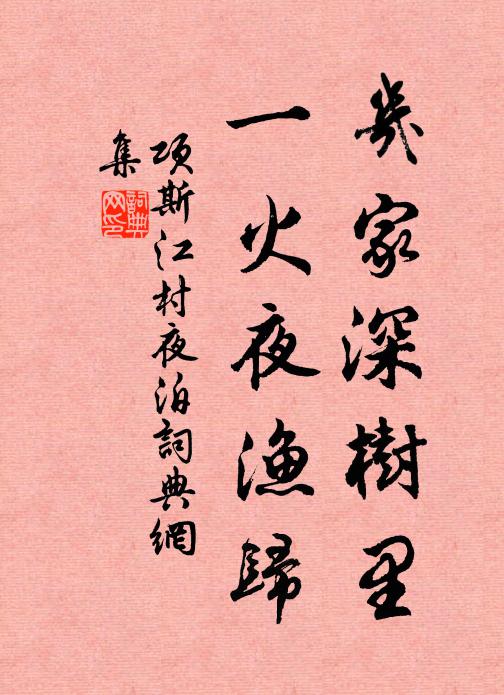 幾家深樹里
一火夜漁歸
項斯江村夜泊詞典網
集
詞典
网印